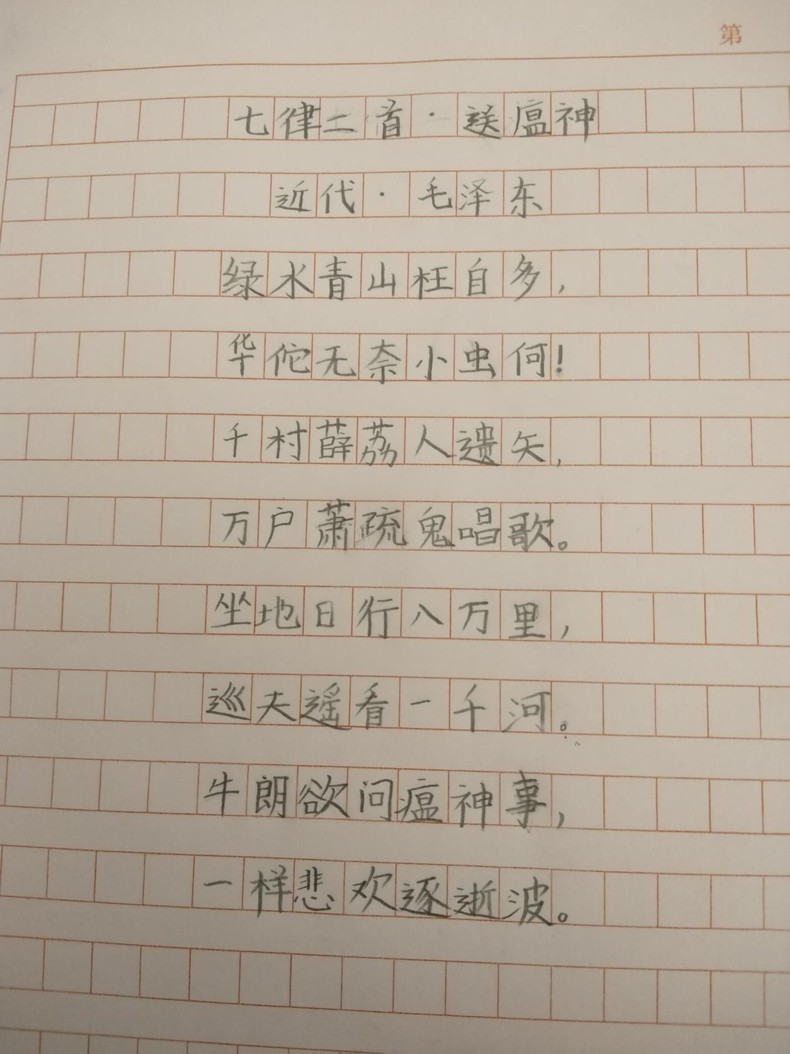 第
七律二首·送瘟神
近代·毛泽东
绿水青山枉自多,
华佗无奈小虫何!
千村薜荔人遗矢,
万户萧疏鬼唱歌。
坐地日行八万里,
巡夫遥看一千河。
牛朗欲问瘟神事,
一样悲欢逐逝波。